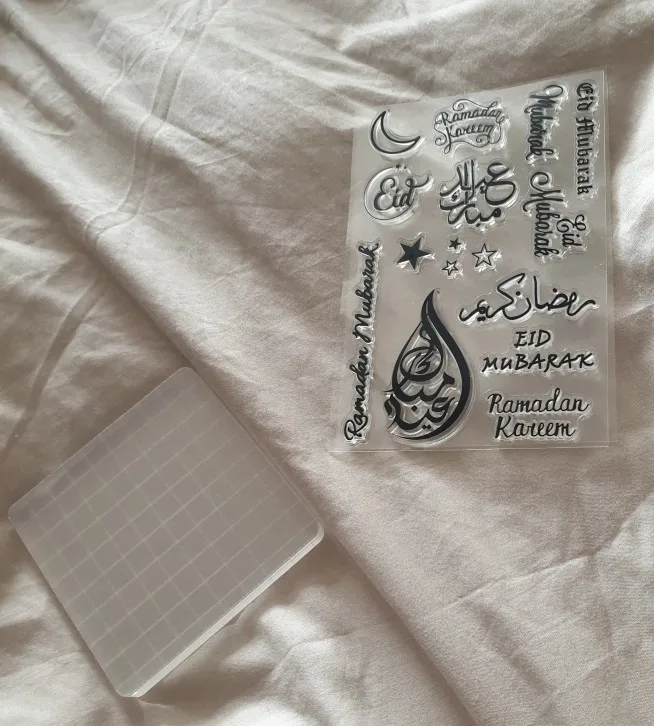 Ramadan
Kareem
Eid
عيد
مبارك
Mubarak
Eid Mubarak
Eid
Mubarak
Ramadan Mubarak
رمضان كريم
EID
MUBARAK
عيد
مبارك
Ramadan
Kareem